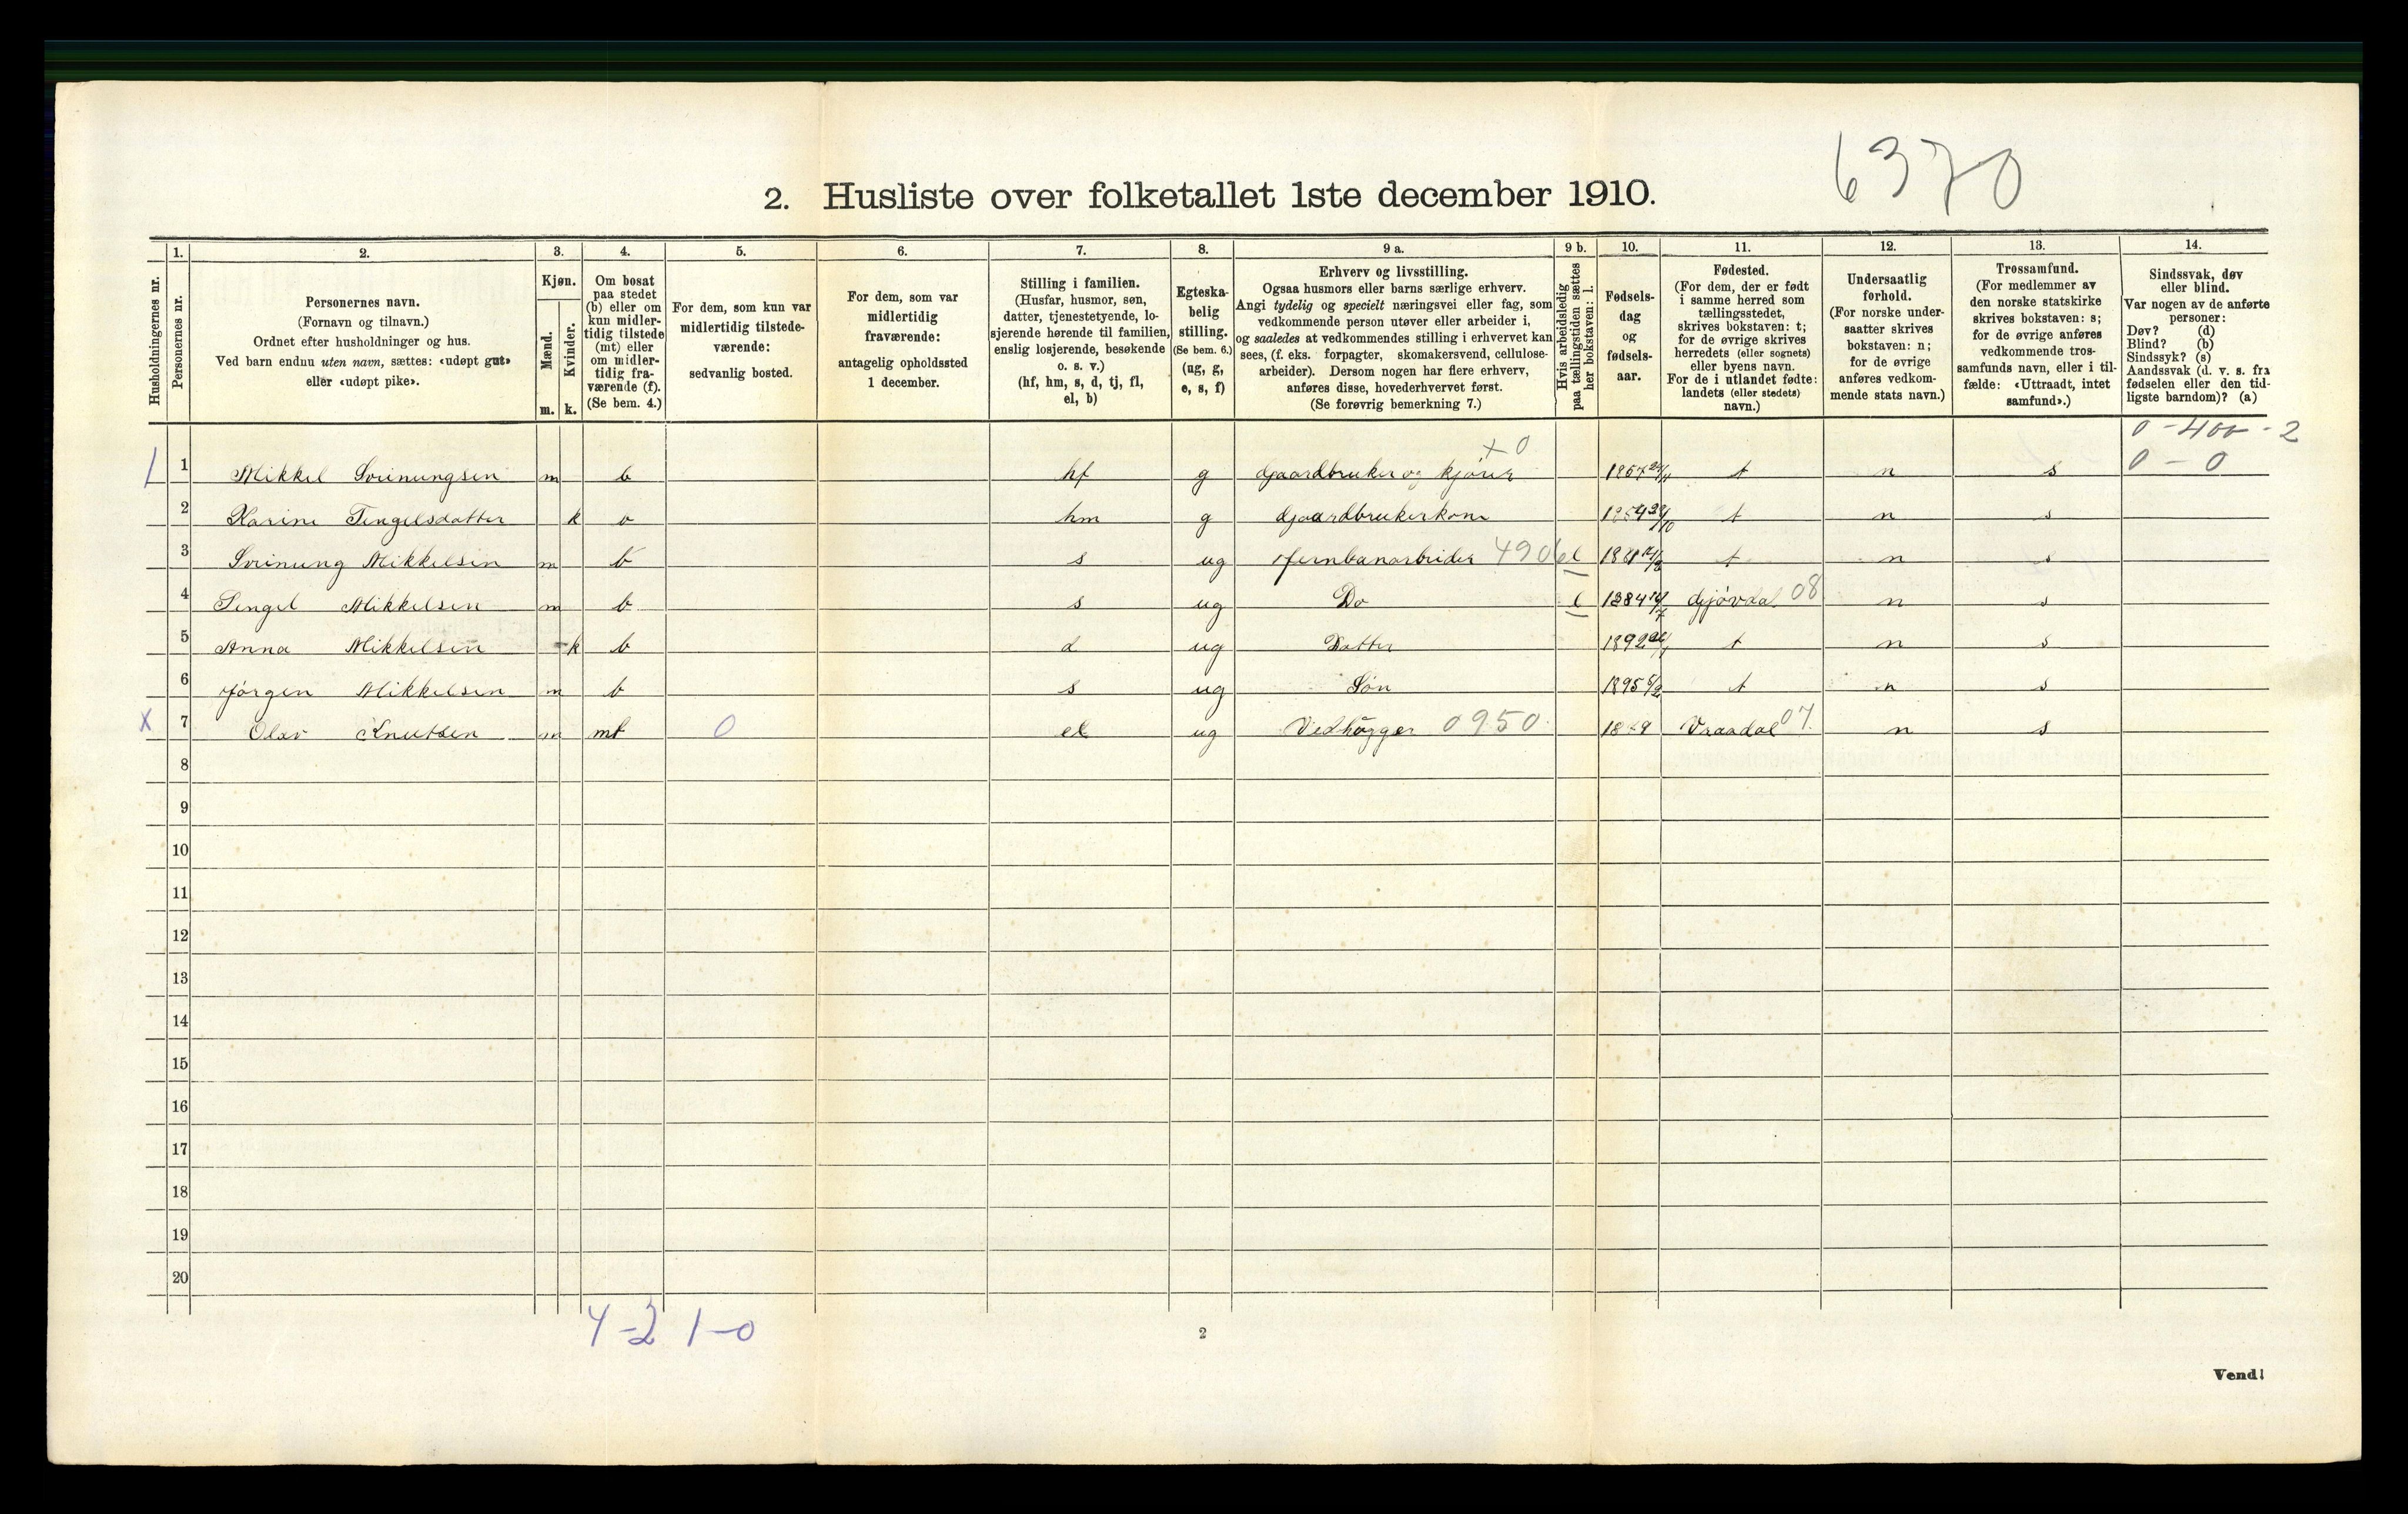 6370
2. Husliste over folketallet 1ste december 1910.
Husholdningernes nr.
1.
Personernes nr.
2.
Personernes navn.
(Fornavn og tilnavn.)
Ordnet efter husholdninger og hus.
Ved barn endnu uten navn, sættes: «udøpt gut»
eller «udøpt pike».
3.
Kjøn.
Mænd.
Kvinder.
m. k.
4.
Om bosat
paa stedet
(b) eller om
kun midler-
tidig tilstede
(mt) eller
om midler-
tidig fra-
værende (f).
(Se bem. 4.)
5.
For dem, som kun var
midlertidig tilstede-
værende:
sedvanlig bosted.
6.
For dem, som var
midlertidig
fraværende:
antagelig opholdssted
1 december.
7.
Stilling i familien.
(Husfar, husmor, søn,
datter, tjenestetyende, lo-
sjerende hørende til familien,
enslig losjerende, besøkende
o. s. v.)
(hf, hm, s, d, tj, fl,
el, b)
8.
Egteska-
belig
stilling.
(Se bem. 6.)
(ug, g,
e, s, f)
9 a.
Erhverv og livsstilling.
Ogsaa husmors eller barns særlige erhverv.
Angi tydelig og specielt næringsvei eller fag, som
vedkommende person utøver eller arbeider i,
og saaledes at vedkommendes stilling i erhvervet kan
sees, (f. eks. forpagter, skomakersvend, cellulose-
arbeider). Dersom nogen har flere erhverv,
anføres disse, hovederhvervet først.
(Se forøvrig bemerkning 7.)
9 b.
Hvis arbeidsledig
paa tællingstiden sættes
her bokstaven: l.
10.
Fødsels-
dag
og
fødsels-
aar.
11.
Fødested.
(For dem, der er født
i samme herred som
tællingsstedet,
skrives bokstaven: t;
for de øvrige skrives
herredets (eller sognets)
eller byens navn.
For de i utlandet fødte:
landets (eller stedets)
navn.)
12.
Undersaatlig
forhold.
(For norske under-
saatter skrives
bokstaven: n;
for de øvrige
anføres vedkom-
mende stats navn.)
13.
Trossamfund.
(For medlemmer av
den norske statskirke
skrives bokstaven: s;
for de øvrige anføres
vedkommende tros-
samfunds navn, eller i til-
fælde: «Uttraadt, intet
samfund».)
14.
Sindssvak, døv
eller blind.
Var nogen av de anførte
personer:
Døv? (d)
Blind? (b)
Sindssyk? (s)
Aandssvak (d. v. s. fra
fødselen eller den tid-
ligste barndom)? (a)
0 - 400 - 2
+ 0
1 Mikkel Sveinungsen m b hf g Gaardbruker og kjörer 1857 24/11 t n s 0 - 0
2 Karine Tengelsdatter k hm g Gjaardbrukerkone 1854 t n s
3 Sveinung Mikkelsen m b s ug Jernbanarbeider 490 l 1881 t n s
4 Tengel Mikkelsen m b s ug Do l 1884 Gjövdal 08 n s
5 Anna Mikkelsen k b d ug Datter 1892 t n s
6 Jörgen Mikkelsen m b s ug Sön 1895 t n s
X 7 Olav Knutsen m mt 0 el ug Vedhögger 0950 Vraadal 07 n s
8
9
10
11
12
13
14
15
16
17
18
19
20
4 - 2 1 - 0
2
Vend!